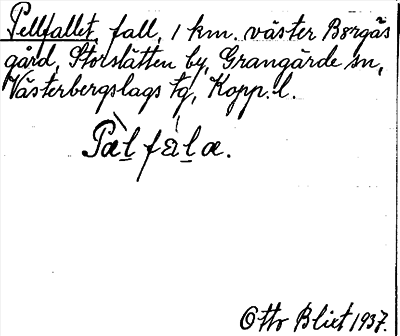 Pellfallet, fall, 1 km. väster Bergås
gård, Storslätten by, Grangärde sn,
Västerbergslags tg, Kopp. l.
Pæ̀l fàla.
Otto Blixt 1937.